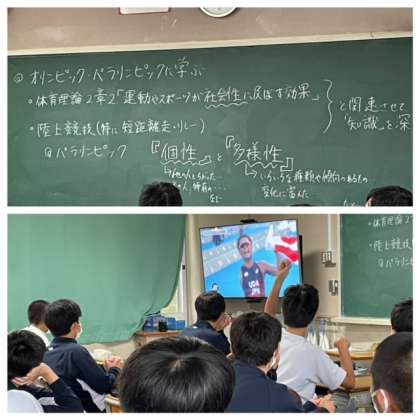 ◎ オリンピック・パラリンピックに学ぶ
・体育理論2章2「運動やスポーツが社会性に及ぼす効果」
と関連させて
「知識」を深
・陸上競技(特に短距離走・リレー)
@パラリンピック 『個性』と『多様性』
↳いろいろな種類や傾向のあるもの
変化に富んだ…
など
UDA
JPN
体育理論2
・陸上競技
@パラリン